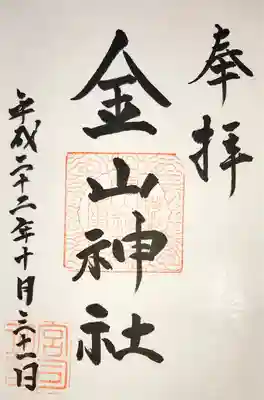 奉拝
金山神社
平成二十二年十月三十一日